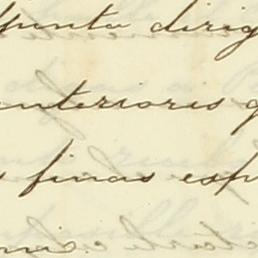 punta dirig
anteriores g
s finas esp
mi.